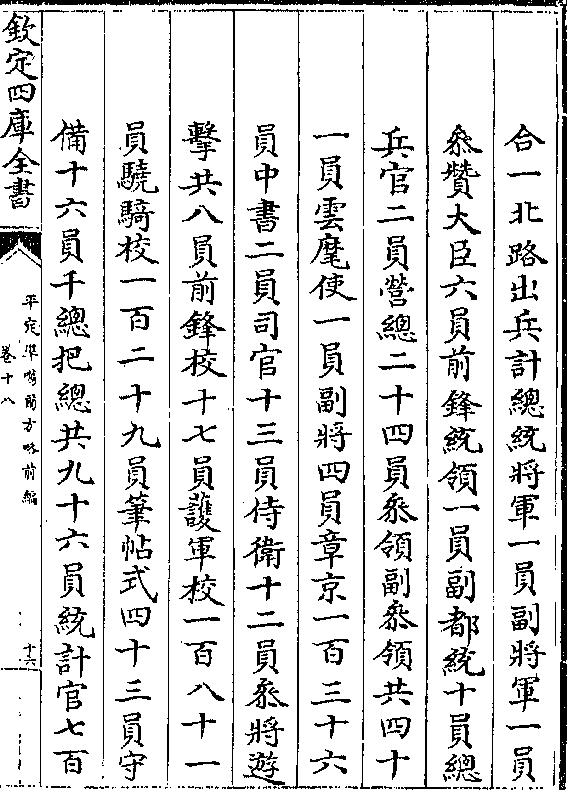 合一北路出兵計總統將軍一員副將軍一員
叅贊大臣六員前鋒統領一員副都統十員總
兵官二員營總二十四員叅領副叅領共四十
一員雲麾使一員副將四員章京一百三十六
員中書二員司官十三員侍衛十二員叅將遊
擊共八員前鋒校十七員護軍校一百八十一
員驍騎校一百二十九員筆帖式四十三員守
備十六員千總把總共九十六員統計官七百
欽定四庫全書
平定準噶爾方略前編
卷十八
十六